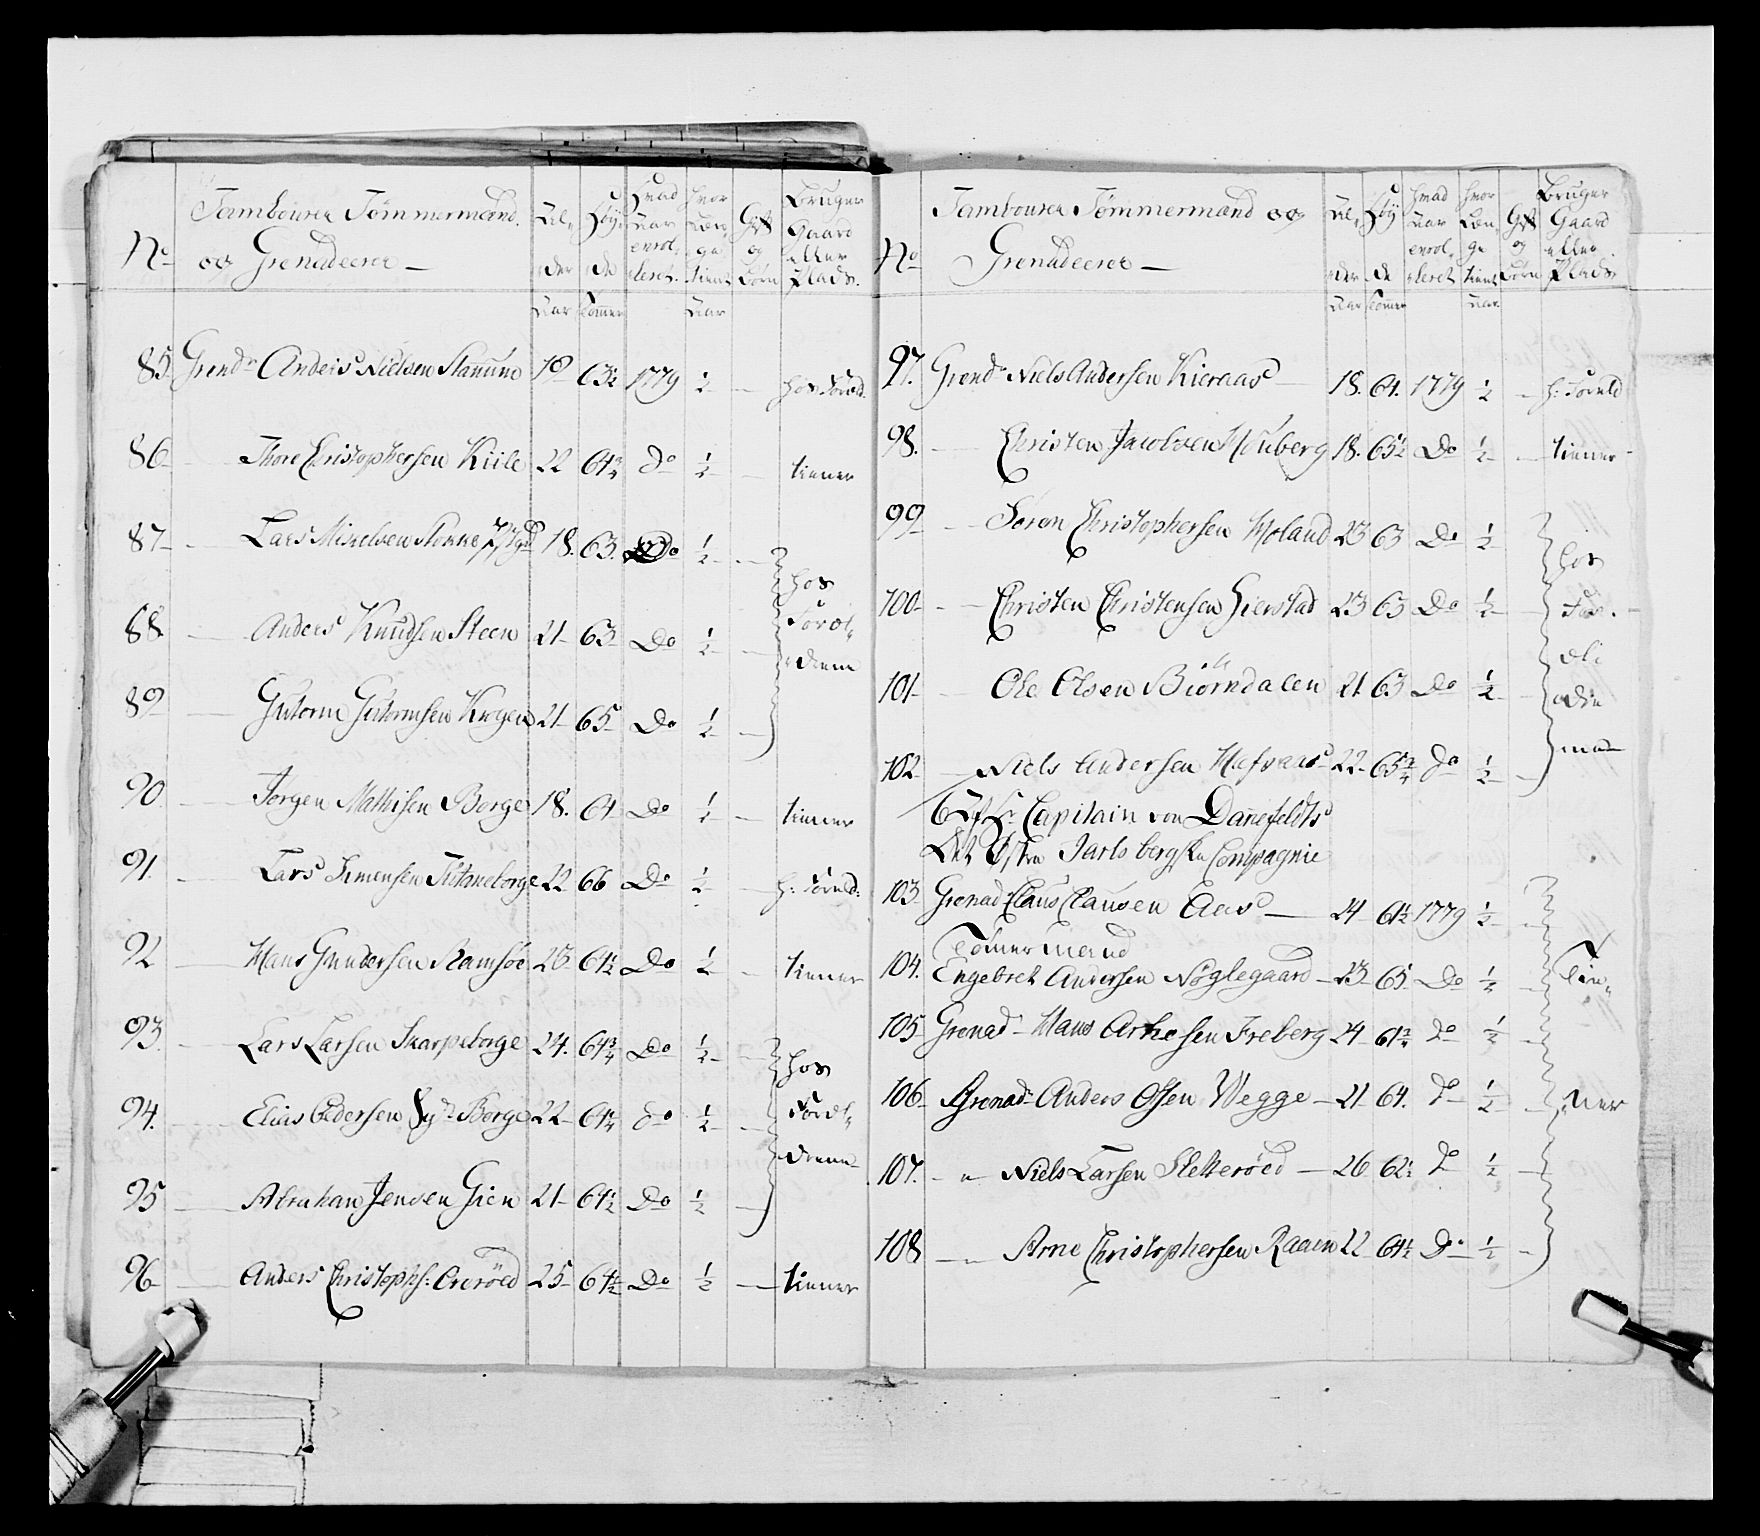 No
Tambourer Tømmermænd
og Grenadeerer —
Al-
der
Aar
Høy-
de
Tommer
Hvad
Aar
enrol-
leret
Hvor
Læn-
ge
tient
Aar
Gift
og
Børn
Bruger
Gaard
eller
Plads.
85 Grend.r Anders Nielsen 18 63½ 1779 ½ — hos Foreld.
86 — Thore Christophersen Kiile 22 64¾ do ½ — tiener
87 — Lars 18. 63. Do ½ —
88 — Anders Knudsen Steen 21 63 Do ½ —
hos
Foræl-
drene
89 — Gutorm Gutormsen Krogen 21 65 Do ½ —
90 — Jørgen Mathisen Borge 18. 64 Do ½ — tiener
91. — Lars Simensen 22 66 Do ½ — h: Foreld:
92 — Hans Gundersen Ramsøe 25 64½ Do ½ — tiener
93 — Lars Larsen Skarpeborge 24. 64¾ Do ½ —
94. — Elias Pedersen Borge 22 64¾ do ½ —
hos
Foræl-
drene
95 — Abraham Jensen Gien 21 64½ Do ½ —
96 — Anders Christophs: 25 64½ Do ½ — tiener
No
Tambourer Tømmermænd og
Grenadeerer —
Al-
der
Aar
Høy-
de
Tommer
Hvad
Aar
enrol-
leret
Hvor
Læn-
ge
tient
Aar
Gift
og
Børn
Bruger
Gaard
eller
Plads.
97. Grend.r Niels Andersen Kieraas 18. 64. 1779 ½ — h: Foreld
98. — Christen Jacobsen 18. 65½ Do ½ — tiener
99 — Søren Christophersen Moland 23 63 Do ½
100 — Christen Christensen Gierstad 23 63 Do ½ —
101 — Ole Olsen Biørndalen 21 63 Do ½ —
102 — Niels Andersen 22 65¾ do ½ —
hos
For-
Af Hr Capitain von Dannefeldts
Det Østre Jarlsbergske Compagnie
103. Grenad. Claus Clausen Aas — 24 61½ 1779 ½ —
Tømmermand
104. Engebret Andersen Nøglegaard — 23 65 Do ½ —
105 Grenad. Hans Freberg 24 61¾ do ½ —
106 Grenad. Anders Olsen Wegge — 21 64. do ½ —
107. — " Niels Larsen Sletterøed — 26 62½ do ½ —
108 — " Arne Christophersen Raaen 22 64½ Do ½ —
Tie-
ner